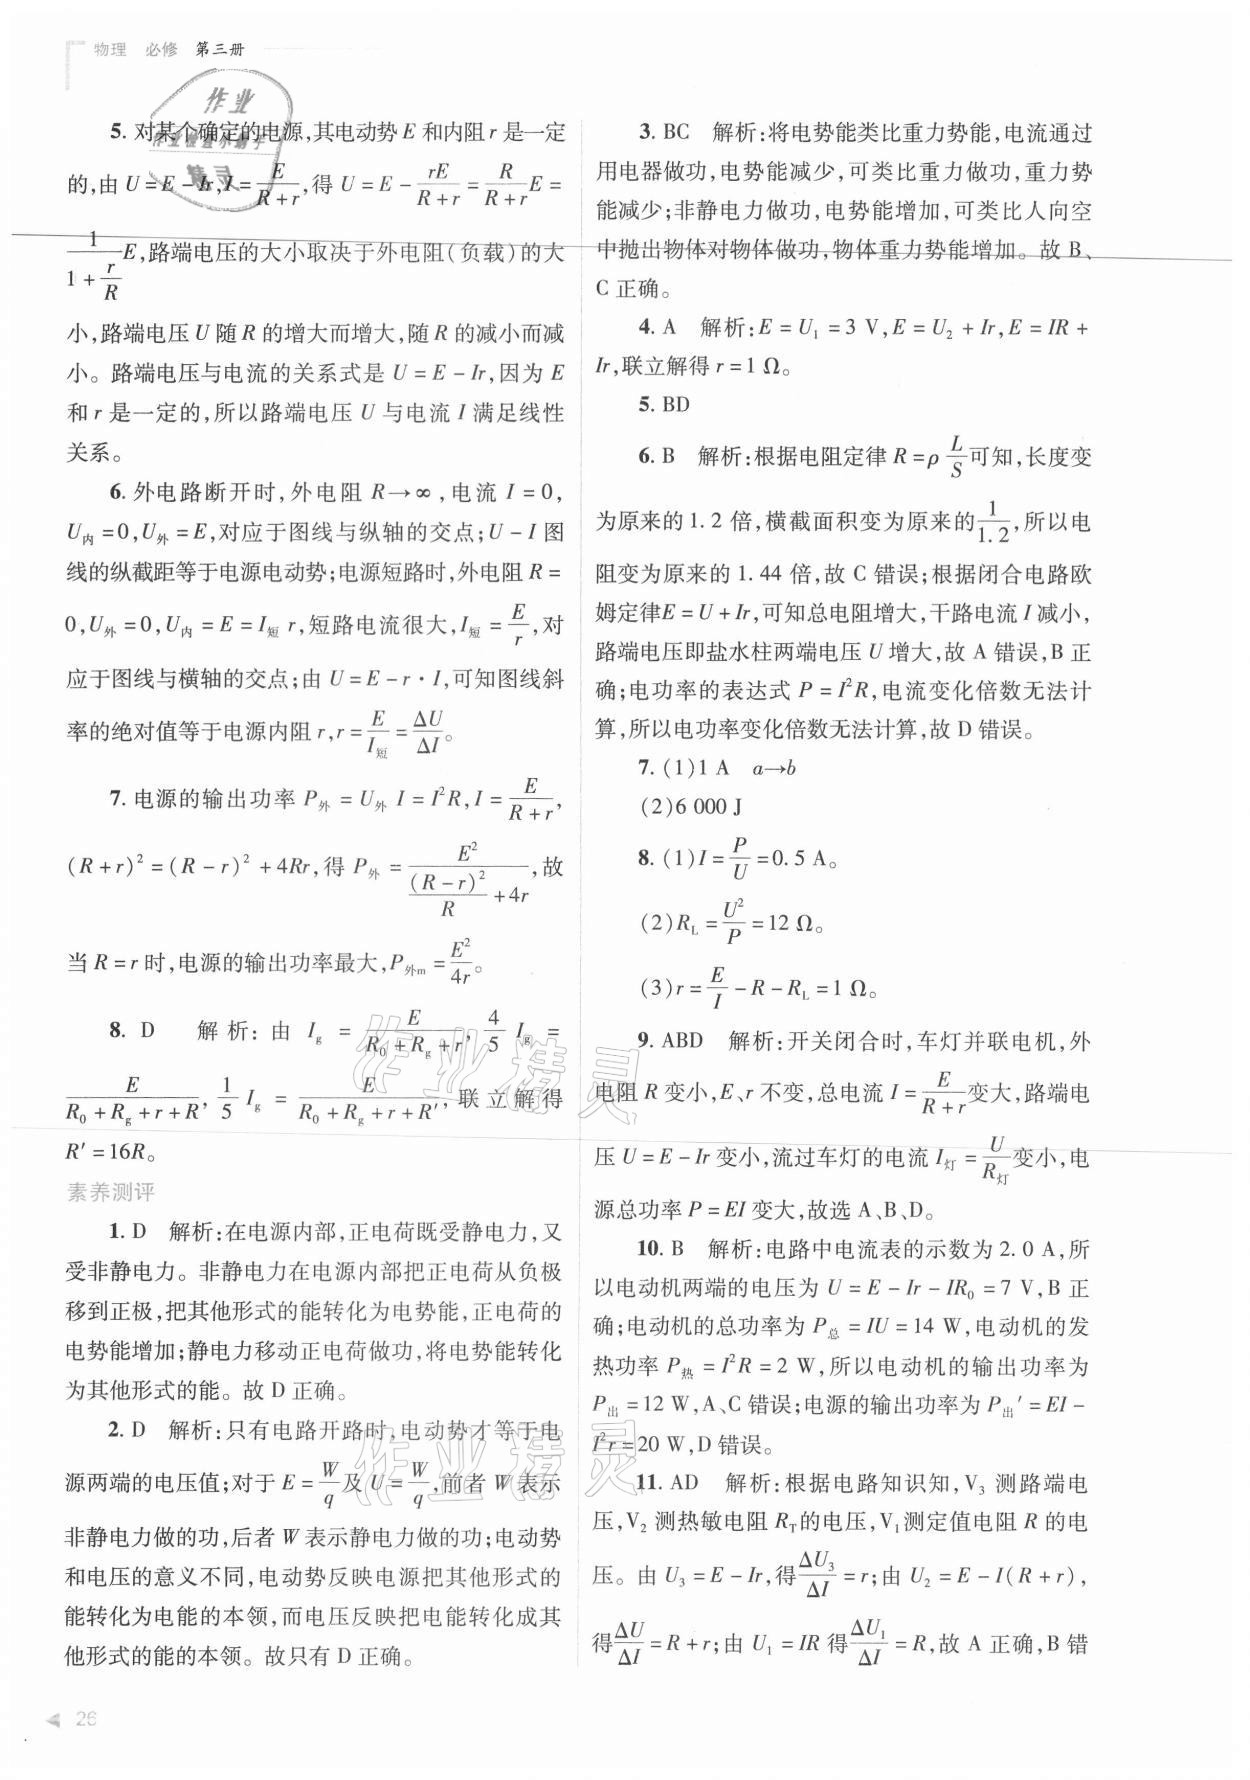 物理 必修 第三册
5. 对某个确定的电源,其电动势 E 和内阻 r 是一定
的,由 U = E − Ir, I = E/(R + r),得 U = E − rE/(R + r) = R/(R + r) E =
1/(1 + r/R) E,路端电压的大小取决于外电阻(负载)的大
小,路端电压 U 随 R 的增大而增大,随 R 的减小而减
小。路端电压与电流的关系式是 U = E − Ir,因为 E
和 r 是一定的,所以路端电压 U 与电流 I 满足线性
关系。
6. 外电路断开时,外电阻 R→∞,电流 I = 0,
U内 = 0, U外 = E,对应于图线与纵轴的交点; U − I 图
线的纵截距等于电源电动势;电源短路时,外电阻 R =
0, U外 = 0, U内 = E = I短 r,短路电流很大, I短 = E/r,对
应于图线与横轴的交点;由 U = E − r · I,可知图线斜
率的绝对值等于电源内阻 r, r = E/I短 = ΔU/ΔI。
7. 电源的输出功率 P外 = U外 I = I²R, I = E/(R + r),
(R + r)² = (R − r)² + 4Rr,得 P外 = E²/((R − r)²/R + 4r),故
当 R = r 时,电源的输出功率最大, P外m = E²/4r。
8. D 解析:由 Ig = E/(R₀ + Rg + r), 4/5 Ig =
E/(R₀ + Rg + r + R), 1/5 Ig = E/(R₀ + Rg + r + R′),联立解得
R′ = 16R。
素养测评
1. D 解析:在电源内部,正电荷既受静电力,又
受非静电力。非静电力在电源内部把正电荷从负极
移到正极,把其他形式的能转化为电势能,正电荷的
电势能增加;静电力移动正电荷做功,将电势能转化
为其他形式的能。故 D 正确。
2. D 解析:只有电路开路时,电动势才等于电
源两端的电压值;对于 E = W/q 及 U = W/q,前者 W 表示
非静电力做的功,后者 W 表示静电力做的功;电动势
和电压的意义不同,电动势反映电源把其他形式的
能转化为电能的本领,而电压反映把电能转化成其
他形式的能的本领。故只有 D 正确。
26
3. BC 解析:将电势能类比重力势能,电流通过
用电器做功,电势能减少,可类比重力做功,重力势
能减少;非静电力做功,电势能增加,可类比人向空
中抛出物体对物体做功,物体重力势能增加。故 B、
C 正确。
4. A 解析: E = U₁ = 3 V, E = U₂ + Ir, E = IR +
Ir,联立解得 r = 1 Ω。
5. BD
6. B 解析:根据电阻定律 R = ρ L/S 可知,长度变
为原来的 1. 2 倍,横截面积变为原来的 1/1. 2,所以电
阻变为原来的 1. 44 倍,故 C 错误;根据闭合电路欧
姆定律 E = U + Ir,可知总电阻增大,干路电流 I 减小,
路端电压即盐水柱两端电压 U 增大,故 A 错误,B 正
确;电功率的表达式 P = I²R,电流变化倍数无法计
算,所以电功率变化倍数无法计算,故 D 错误。
7. (1)1 A a→b
(2)6 000 J
8. (1) I = P/U = 0. 5 A。
(2) RL = U²/P = 12 Ω。
(3) r = E/I − R − RL = 1 Ω。
9. ABD 解析:开关闭合时,车灯并联电机,外
电阻 R 变小, E、r 不变,总电流 I = E/(R + r) 变大,路端电
压 U = E − Ir 变小,流过车灯的电流 I灯 = U/R灯 变小,电
源总功率 P = EI 变大,故选 A、B、D。
10. B 解析:电路中电流表的示数为 2. 0 A,所
以电动机两端的电压为 U = E − Ir − IR₀ = 7 V,B 正
确;电动机的总功率为 P总 = IU = 14 W,电动机的发
热功率 P热 = I²R = 2 W,所以电动机的输出功率为
P出 = 12 W,A、C 错误;电源的输出功率为 P出′ = EI −
I²r = 20 W,D 错误。
11. AD 解析:根据电路知识知,V₃ 测路端电
压,V₂ 测热敏电阻 RT 的电压,V₁ 测定值电阻 R 的电
压。由 U₃ = E − Ir,得 ΔU₃/ΔI = r;由 U₂ = E − I(R + r),
得 ΔU/ΔI = R + r;由 U₁ = IR 得 ΔU₁/ΔI = R,故 A 正确,B 错
作业精灵
作业精灵
作业
作业检查小助手
精灵